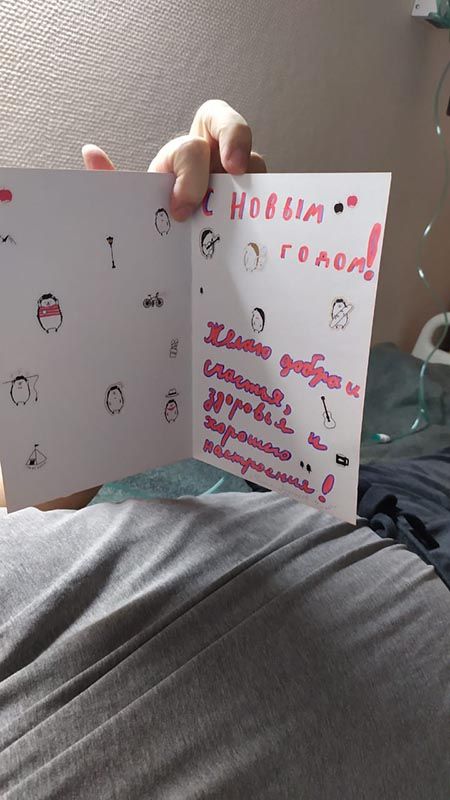 С НОВЫМ
ГОДОМ!
Желаю добра и
счастья,
здоровья и
хорошего
настроения!